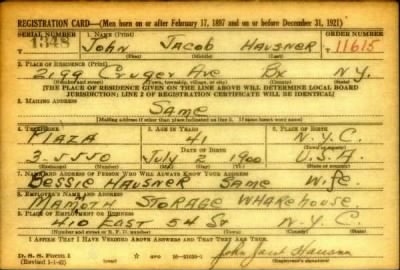 REGISTRATION CARD—(Men born on or after February 17, 1897 and on or before December 31, 1921)
SERIAL NUMBER 1. NAME (Print) ORDER NUMBER
1348 John Jacob Hausner 11615
(First) (Middle) (Last)
2. PLACE OF RESIDENCE (Print)
2199 Cruger Ave Bx N.Y.
(Number and street) (Town, township, village, or city) (County) (State)
[THE PLACE OF RESIDENCE GIVEN ON THE LINE ABOVE WILL DETERMINE LOCAL BOARD
JURISDICTION; LINE 2 OF REGISTRATION CERTIFICATE WILL BE IDENTICAL]
3. MAILING ADDRESS
Same
[Mailing address if other than place indicated on line 2. If same insert word same]
4. TELEPHONE 5. AGE IN YEARS 6. PLACE OF BIRTH
PLAZA 41 N.Y.C.
DATE OF BIRTH (Town or county)
3-5550 July 2 1900 U.S.A.
(Exchange) (Number) (Mo.) (Day) (Yr.) (State or country)
7. NAME AND ADDRESS OF PERSON WHO WILL ALWAYS KNOW YOUR ADDRESS
Bessie Hausner Same Wife
8. EMPLOYER'S NAME AND ADDRESS
Mamoth Storage Wharehouse
9. PLACE OF EMPLOYMENT OR BUSINESS
410 East 54 St N.Y.C.
(Number and street or R. F. D. number) (Town) (County) (State)
I AFFIRM THAT I HAVE VERIFIED ABOVE ANSWERS AND THAT THEY ARE TRUE.
D. S. S. Form 1
(Revised 1-1-42) GPO John Jacob Hausner